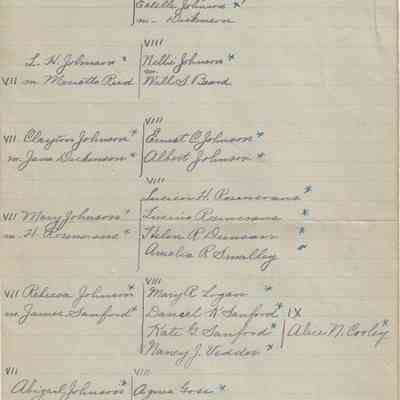 Estelle Johnson *
m- Dickinson
VIII
L. H. Johnson * Nellie Johnson *
m.
VII m. Marietta Reed Will S. Beard
VIII
VII Clayton Johnson * Ernest C Johnson *
m. Jane Dickinson * Albert Johnson *
VIII
Lucien H. Rosencrans *
VII Mary Johnson * Lucius Rosencrans *
m. H. Rosencrans * Helen R Duncan *
Amelia R Smalley *
VIII
VII Rebecca Johnson * Mary R Logan *
m. James Sanford * Daniel W Sanford * IX
Kate G. Sanford * Alice M. Cooley *
Nancy J. Vedder *
VII VIII
Abigail Johnson * Agnes Goss *